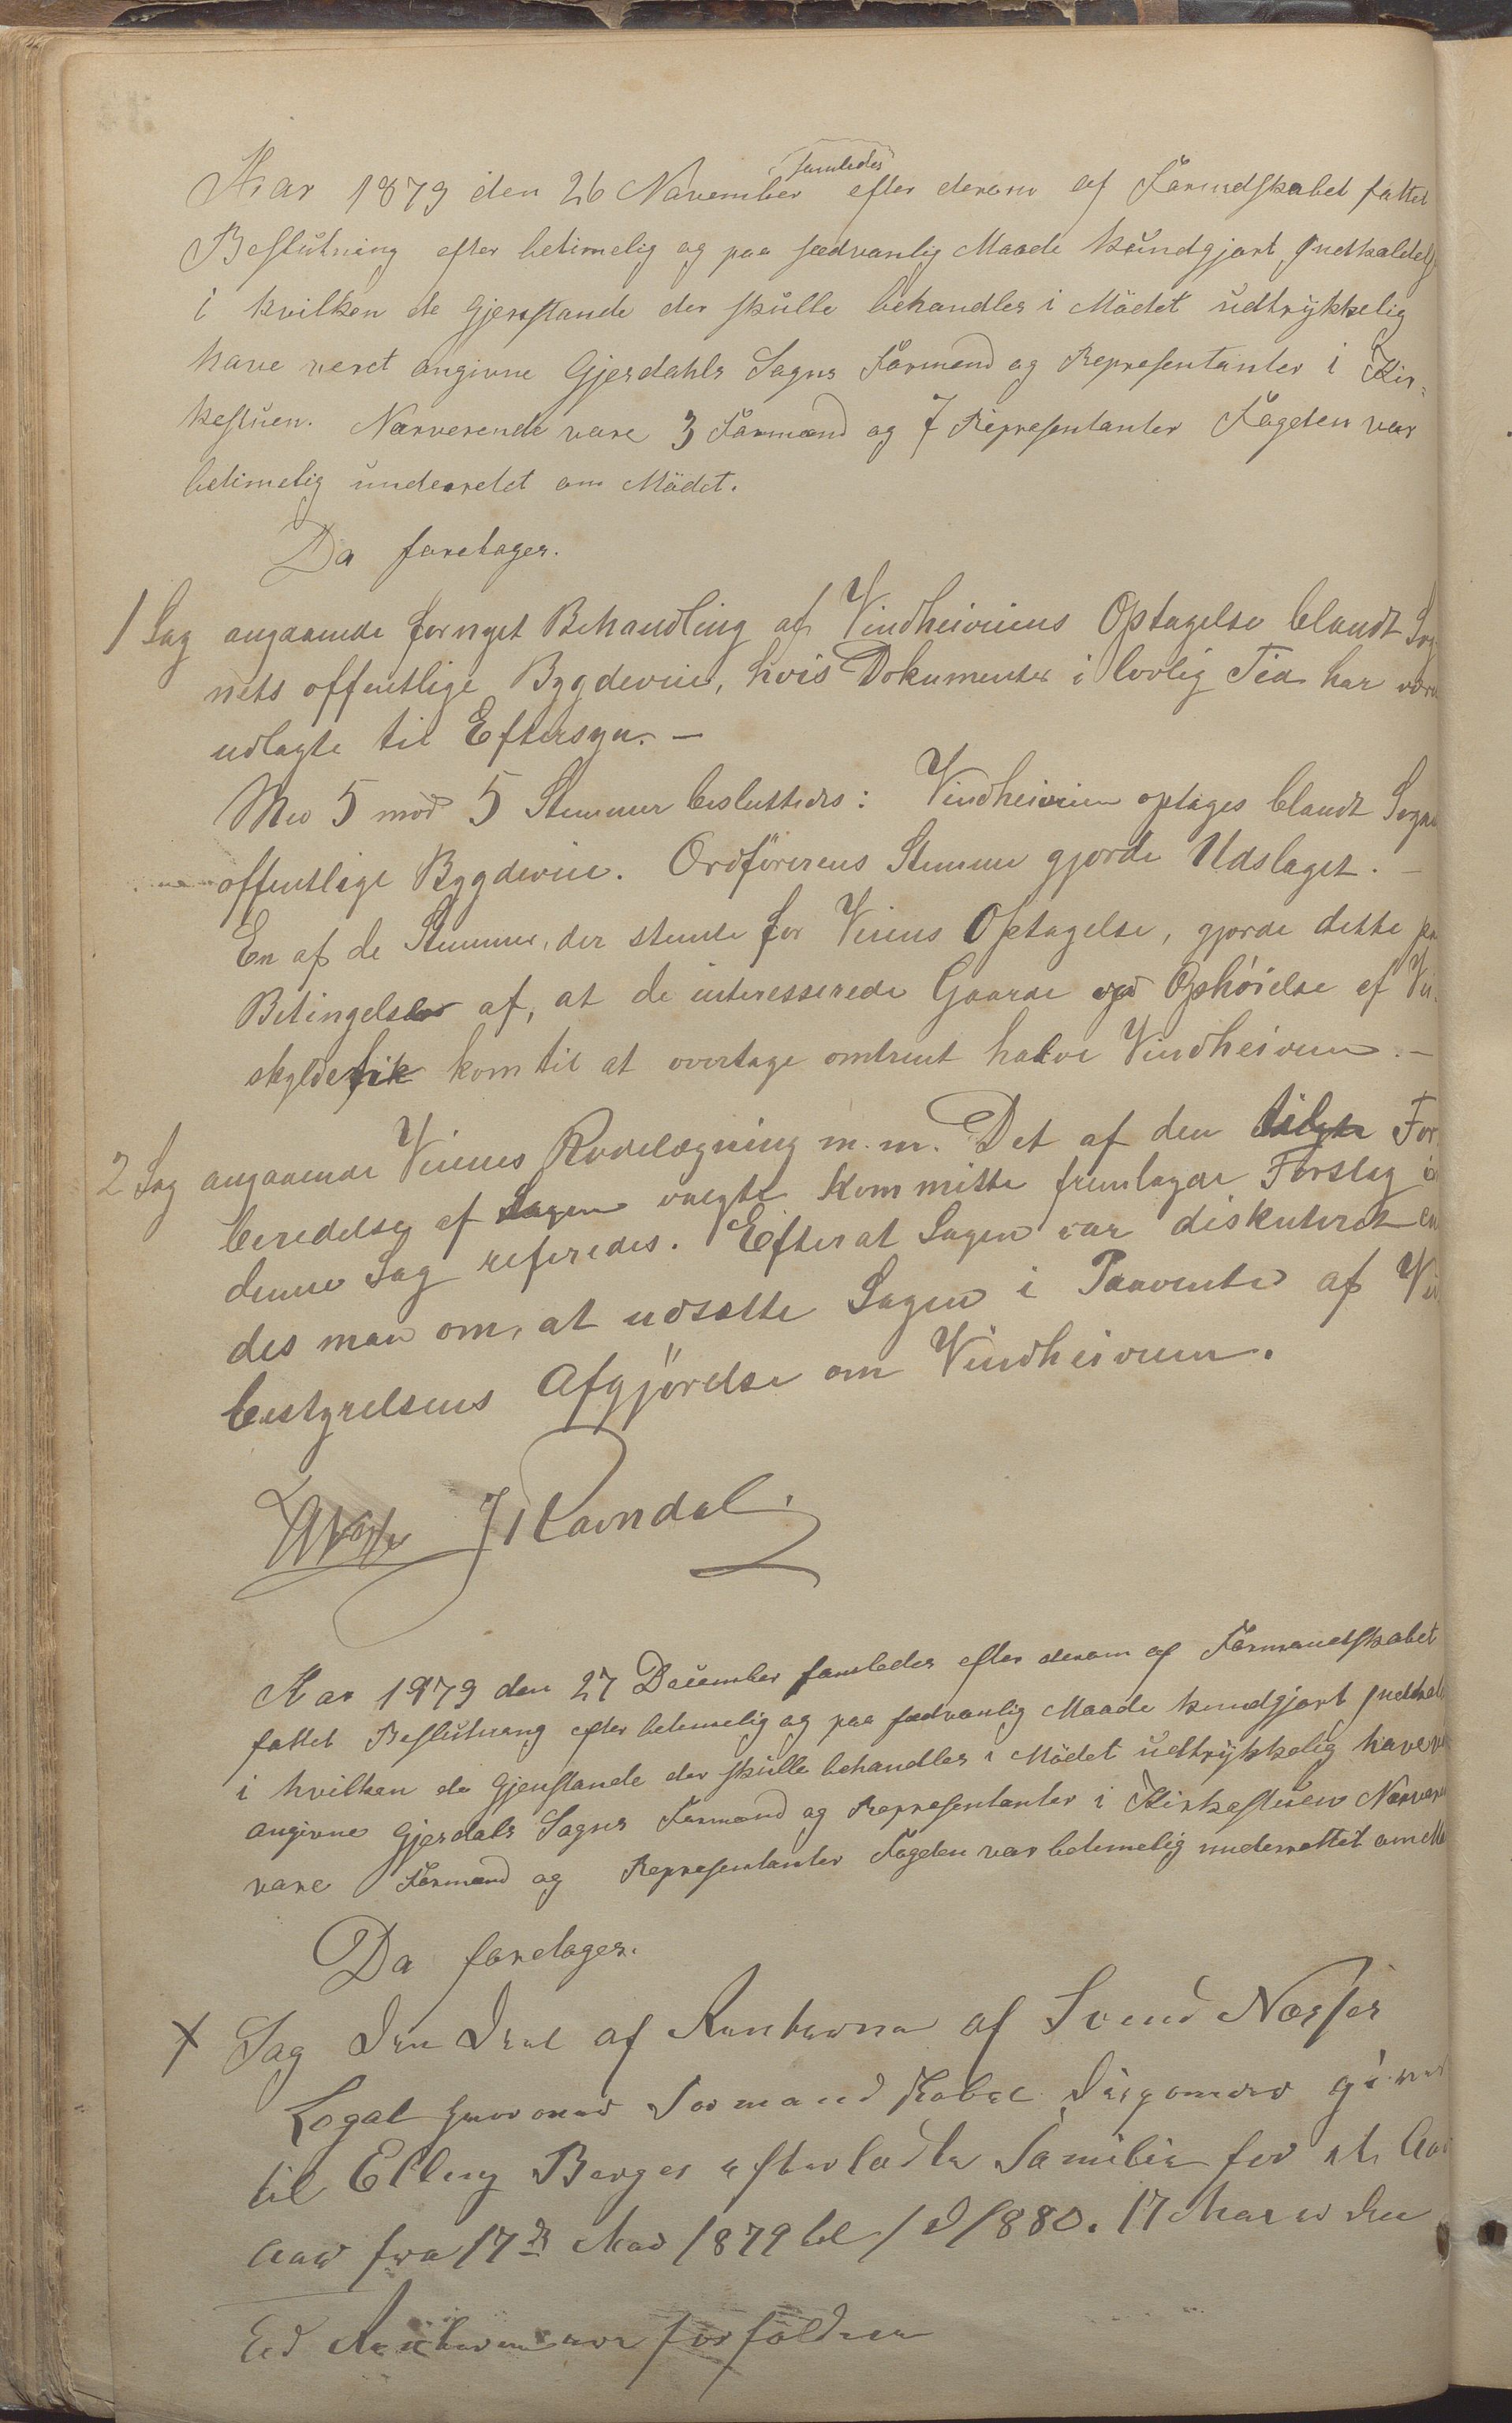 Aar 1879 den 26 November samledes efter derom af Formdskabet fattet
Beslutning efter betimelig og paa sædvanlig Maade kundgjort Indkaldels
i hvilken de Gjenstande der skulle behandles i Mödet udtrykkelig
have veret angivne Gjesdahls Sogns Formend og Representanter i Kir-
kestuen. Nærverende vare 3 Formænd og 7 Representanter Fogden var
betimelig underretet om Mödet.
Da foretoges.
1 Sag angaaende fornyet Behandling af Vindheiveiens Optagelse blandt Sog
nets offentlige Bygdeveie, hvis Dokumenter i lovlig Tid har vær
udlagte til Eftersyn. —
Med 5 mod 5 Stemmer besluttedes: Vindheiveien optages blandt Sogne
offentlige Bygdeveie. Ordförerens Stemme gjorde Udslaget. —
En af de Stemmer, der stemte for Veiens Optagelse, gjorde dette pa
Betingelse af, at de interesserede Gaarde ved Ophöielse af Vei
skylde fik kom til at overtage omtrent halve Vindheiveien. —
2 Sag angaaende Veienes Rodelægning m.m. Det af den tilgte For
beredelse af Sagen valgte Kommitte fremlagde Forslag i
denne Sag refereredes. Efterat Sagen var diskuteret en
des man om, at udsætte Sagen i Paavente af Vei
bestyrelsens Afgjörelse om Vindheiveien.
J Ravndal.
Aar 1879 den 27 December samledes efter derom af Formandskabet
fattet Beslutning efter betimelig og paa sædvanlig Maade kundgjort Indkald
i hvilken de Gjenstande der skulle behandles i Mödet udtrykkelig have ve
angivne Gjesdals Sogns Formend og Representanter i Kirkestuen Nærvere
vare Formænd og Representanter Fogden var betimelig underrettet om Mö
Da foretoges.
X Sag Den Deel af Renterne af Svend Næsses
Legat hvorover Formandskabet Disponerer gives
til Elling Berges efterladte Familie for et Aar
Aar fra 17de Mai 1879 til 1880. 17 Mai
Renterne ere forfaldne